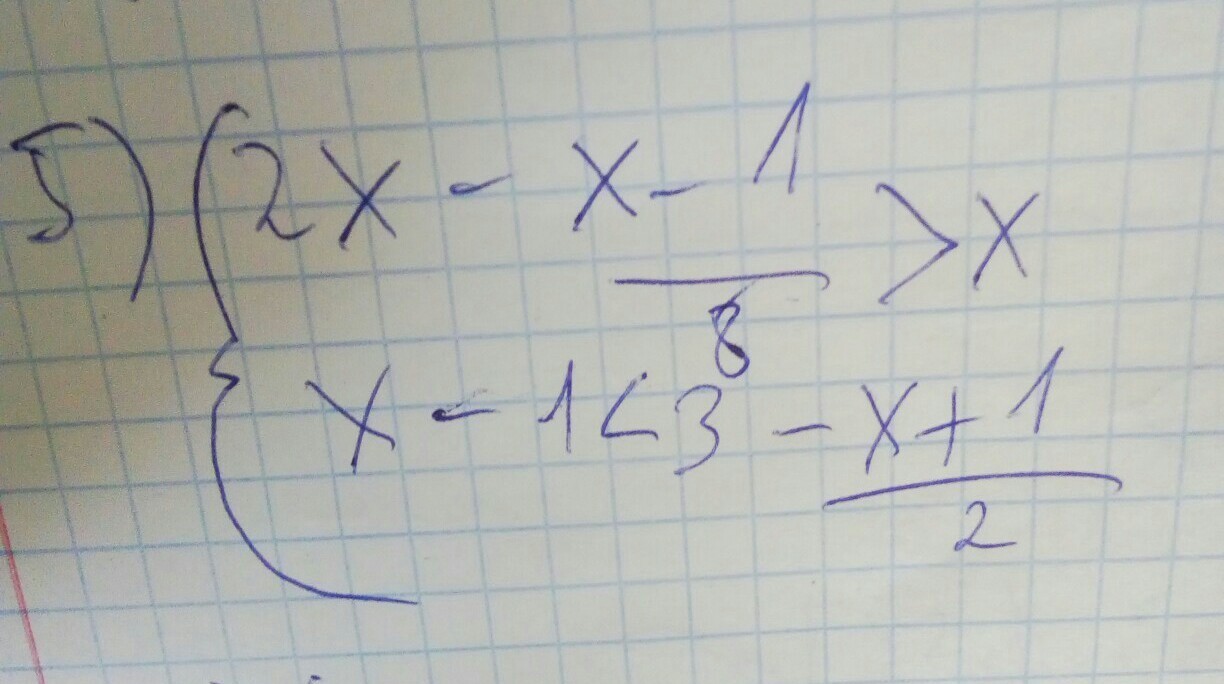 5) { 2x - x - 1 / 8 > x
x - 1 < 3 - x + 1 / 2